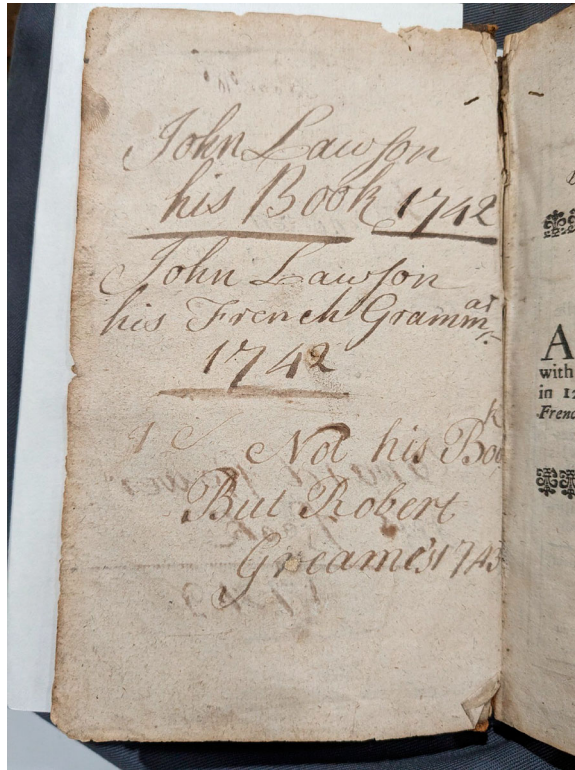 John Lawson
his Book 1742
John Lawson
his French Grammar
1742
Not his Book
But Robert
Greame's 1743
A
with
in 12
Frenc